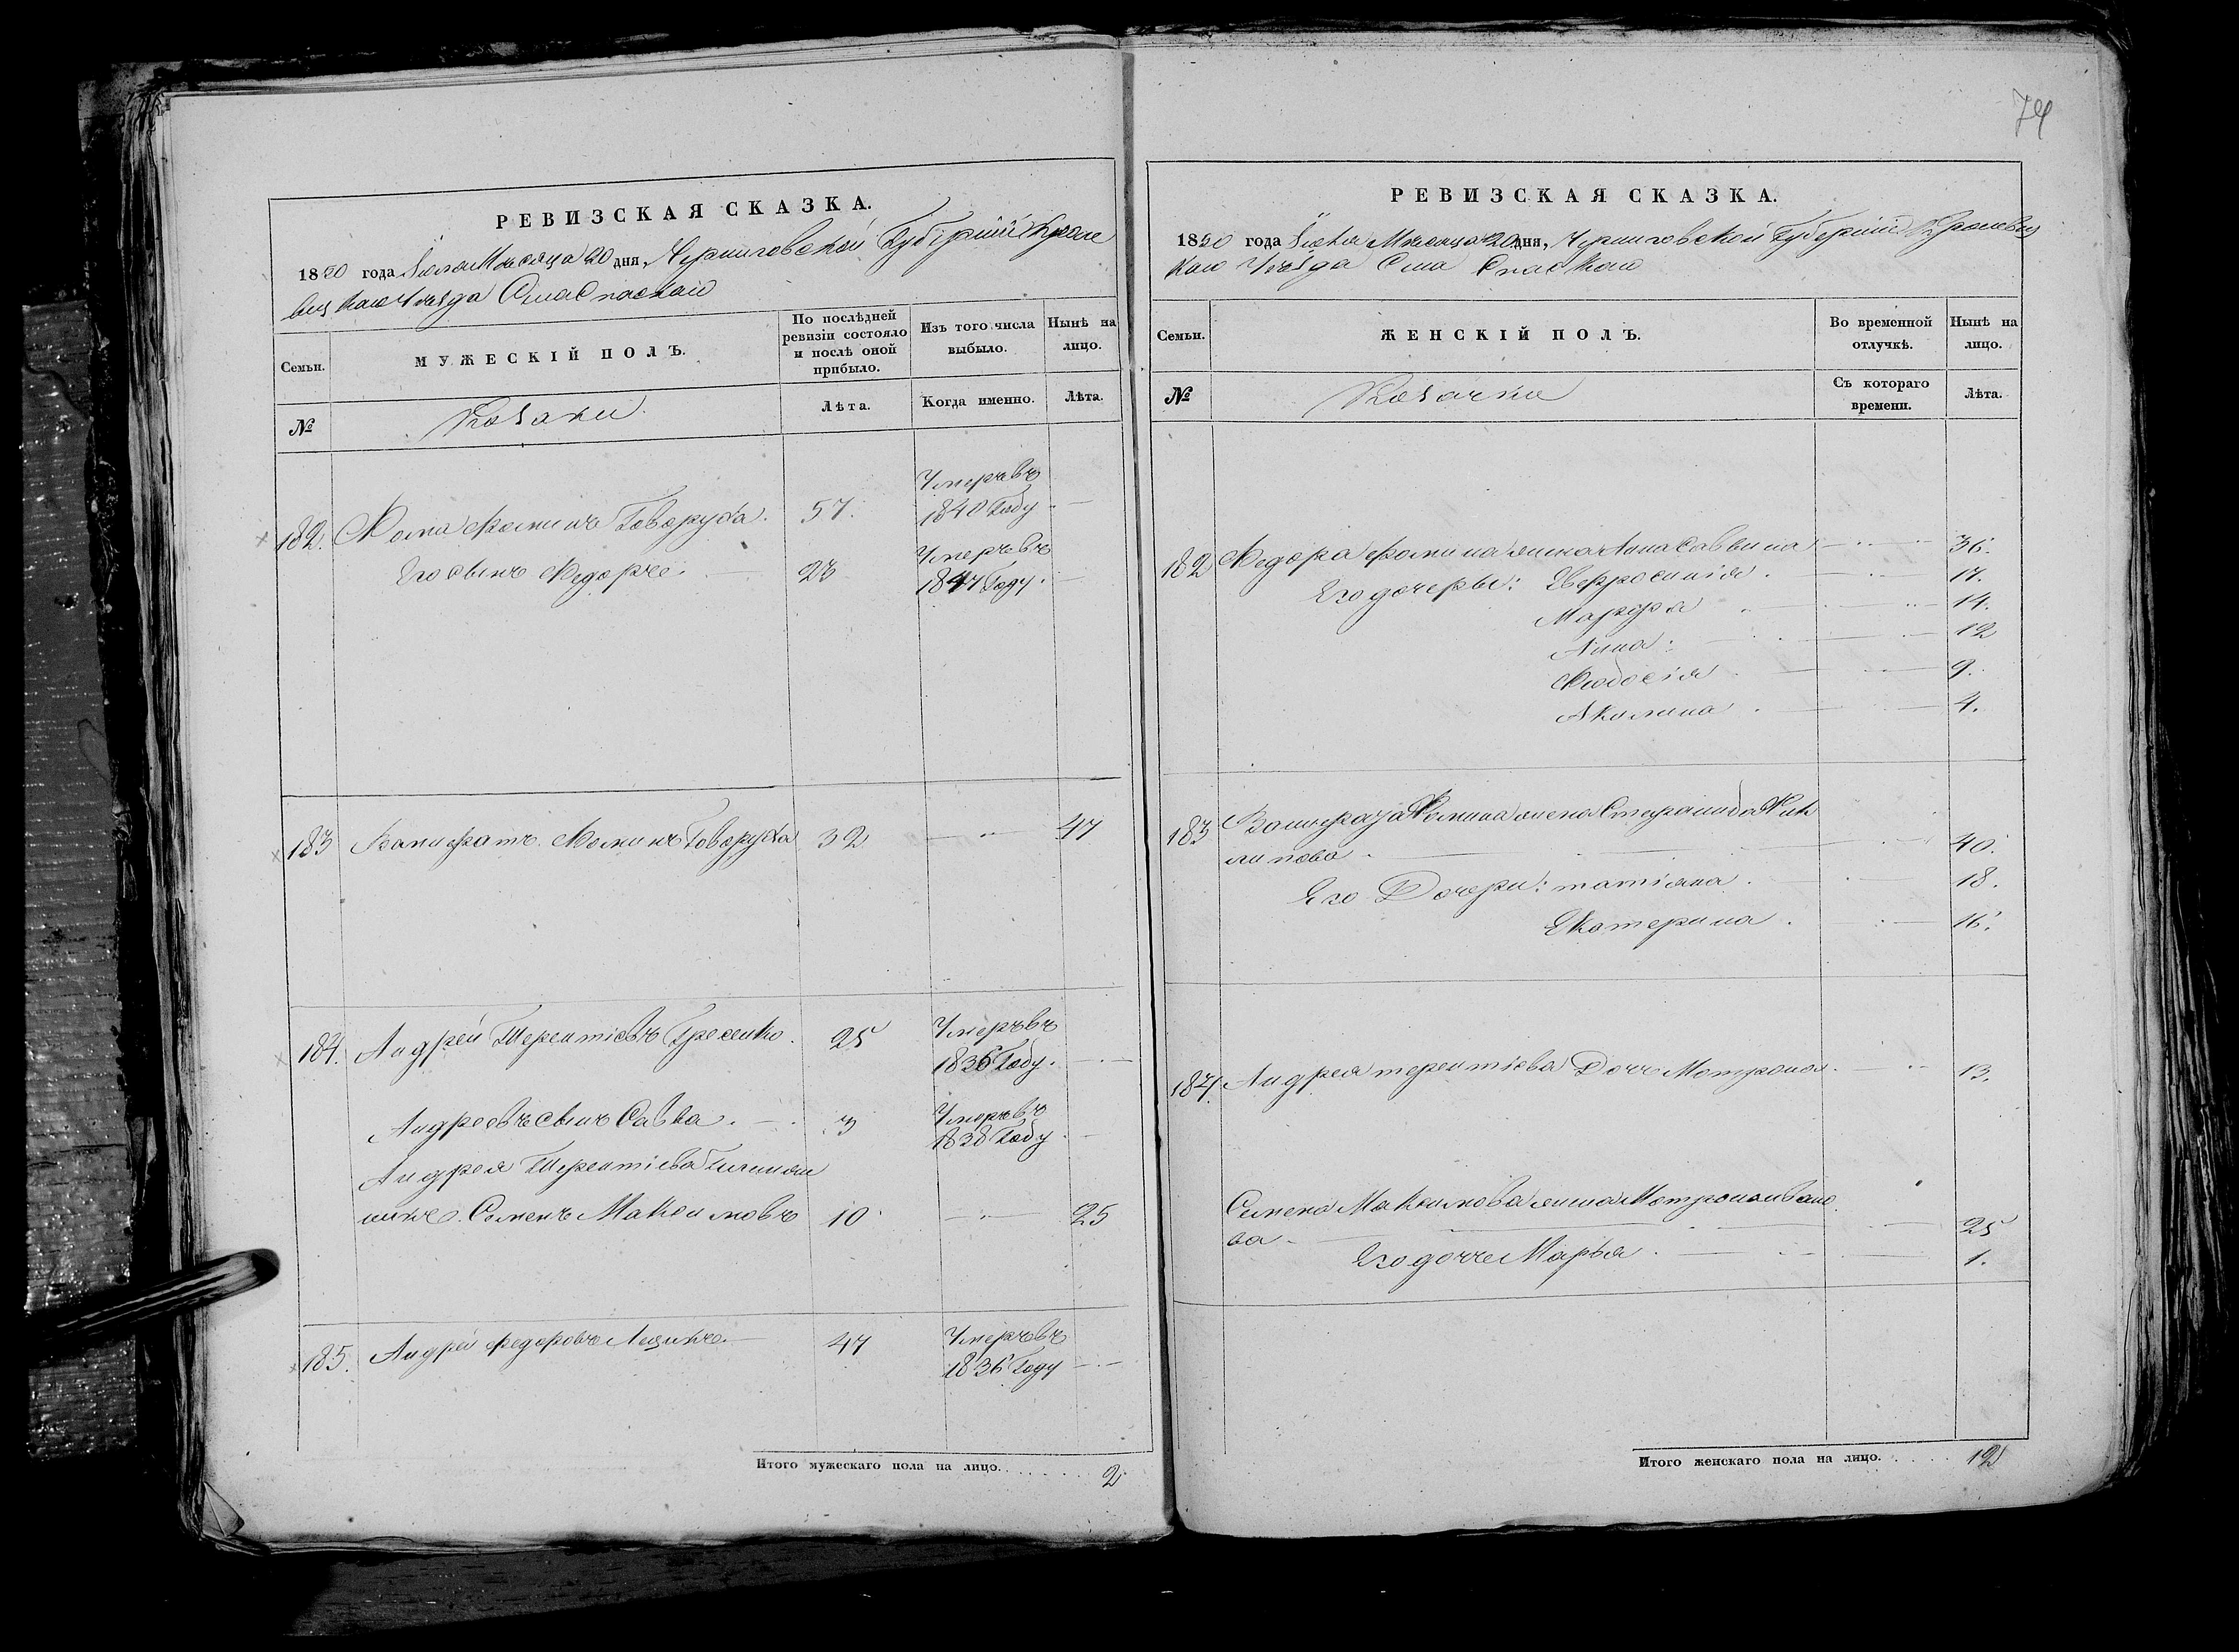 РЕВИЗСКАЯ СКАЗКА.
1850 года Іюля Мѣсяца 20 дня, Черниговской Губерніи Кроле
вецкаго Уѣзда Села Спаскаго
Семьи.
МУЖЕСКІЙ ПОЛЪ.
По послѣдней
ревизіи состояло
и послѣ оной
прибыло.
Изъ того числа
выбыло.
Нынѣ на
лицо.
№
Козаки
Лѣта.
Когда именно.
Лѣта.
182. Фома Фоминъ Говоруха. 57. Умеръ въ 1840 Году —
Его сынъ Федоръ. 23 Умеръ въ 1847 Году. —
183 Фоминъ Говоруха 32 — 47
184. Андрей Терентіевъ 25 Умеръ въ 1836 Году. —
Андреевъ сынъ Савва. 3 Умеръ въ 1838 Году —
Андрея Терентіева
Семенъ Максимовъ 10 — 25
185. Андрей Федоровъ 47 Умеръ въ 1836 Году —
Итого мужескаго пола на лицо. 2
74
РЕВИЗСКАЯ СКАЗКА.
1850 года Іюля Мѣсяца 20 дня, Черниговской Губерніи Кролевец
каго Уѣзда Села Спаскаго
Семьи.
ЖЕНСКІЙ ПОЛЪ.
Во временной
отлучкѣ.
Нынѣ на
лицо.
№
Козачки
Съ котораго
времени.
Лѣта.
182 Федора Фомина жена Анна Саввина — 36.
Его дочеры: Евфросинія. — 17.
Марфа — 14.
Анна. — 12
Феодосія — 9.
Акилина — 4.
183 Фомина жена Степанида Фи
липова — 40.
Его Дочери: татіана. — 18.
Екатерина — 16.
184. Андрея терентіева Дочь Матрона — 13.
Семена Максимова жена Матрона Ивано
ва — 25
Его дочь Марья. — 1.
Итого женскаго пола на лицо. 12